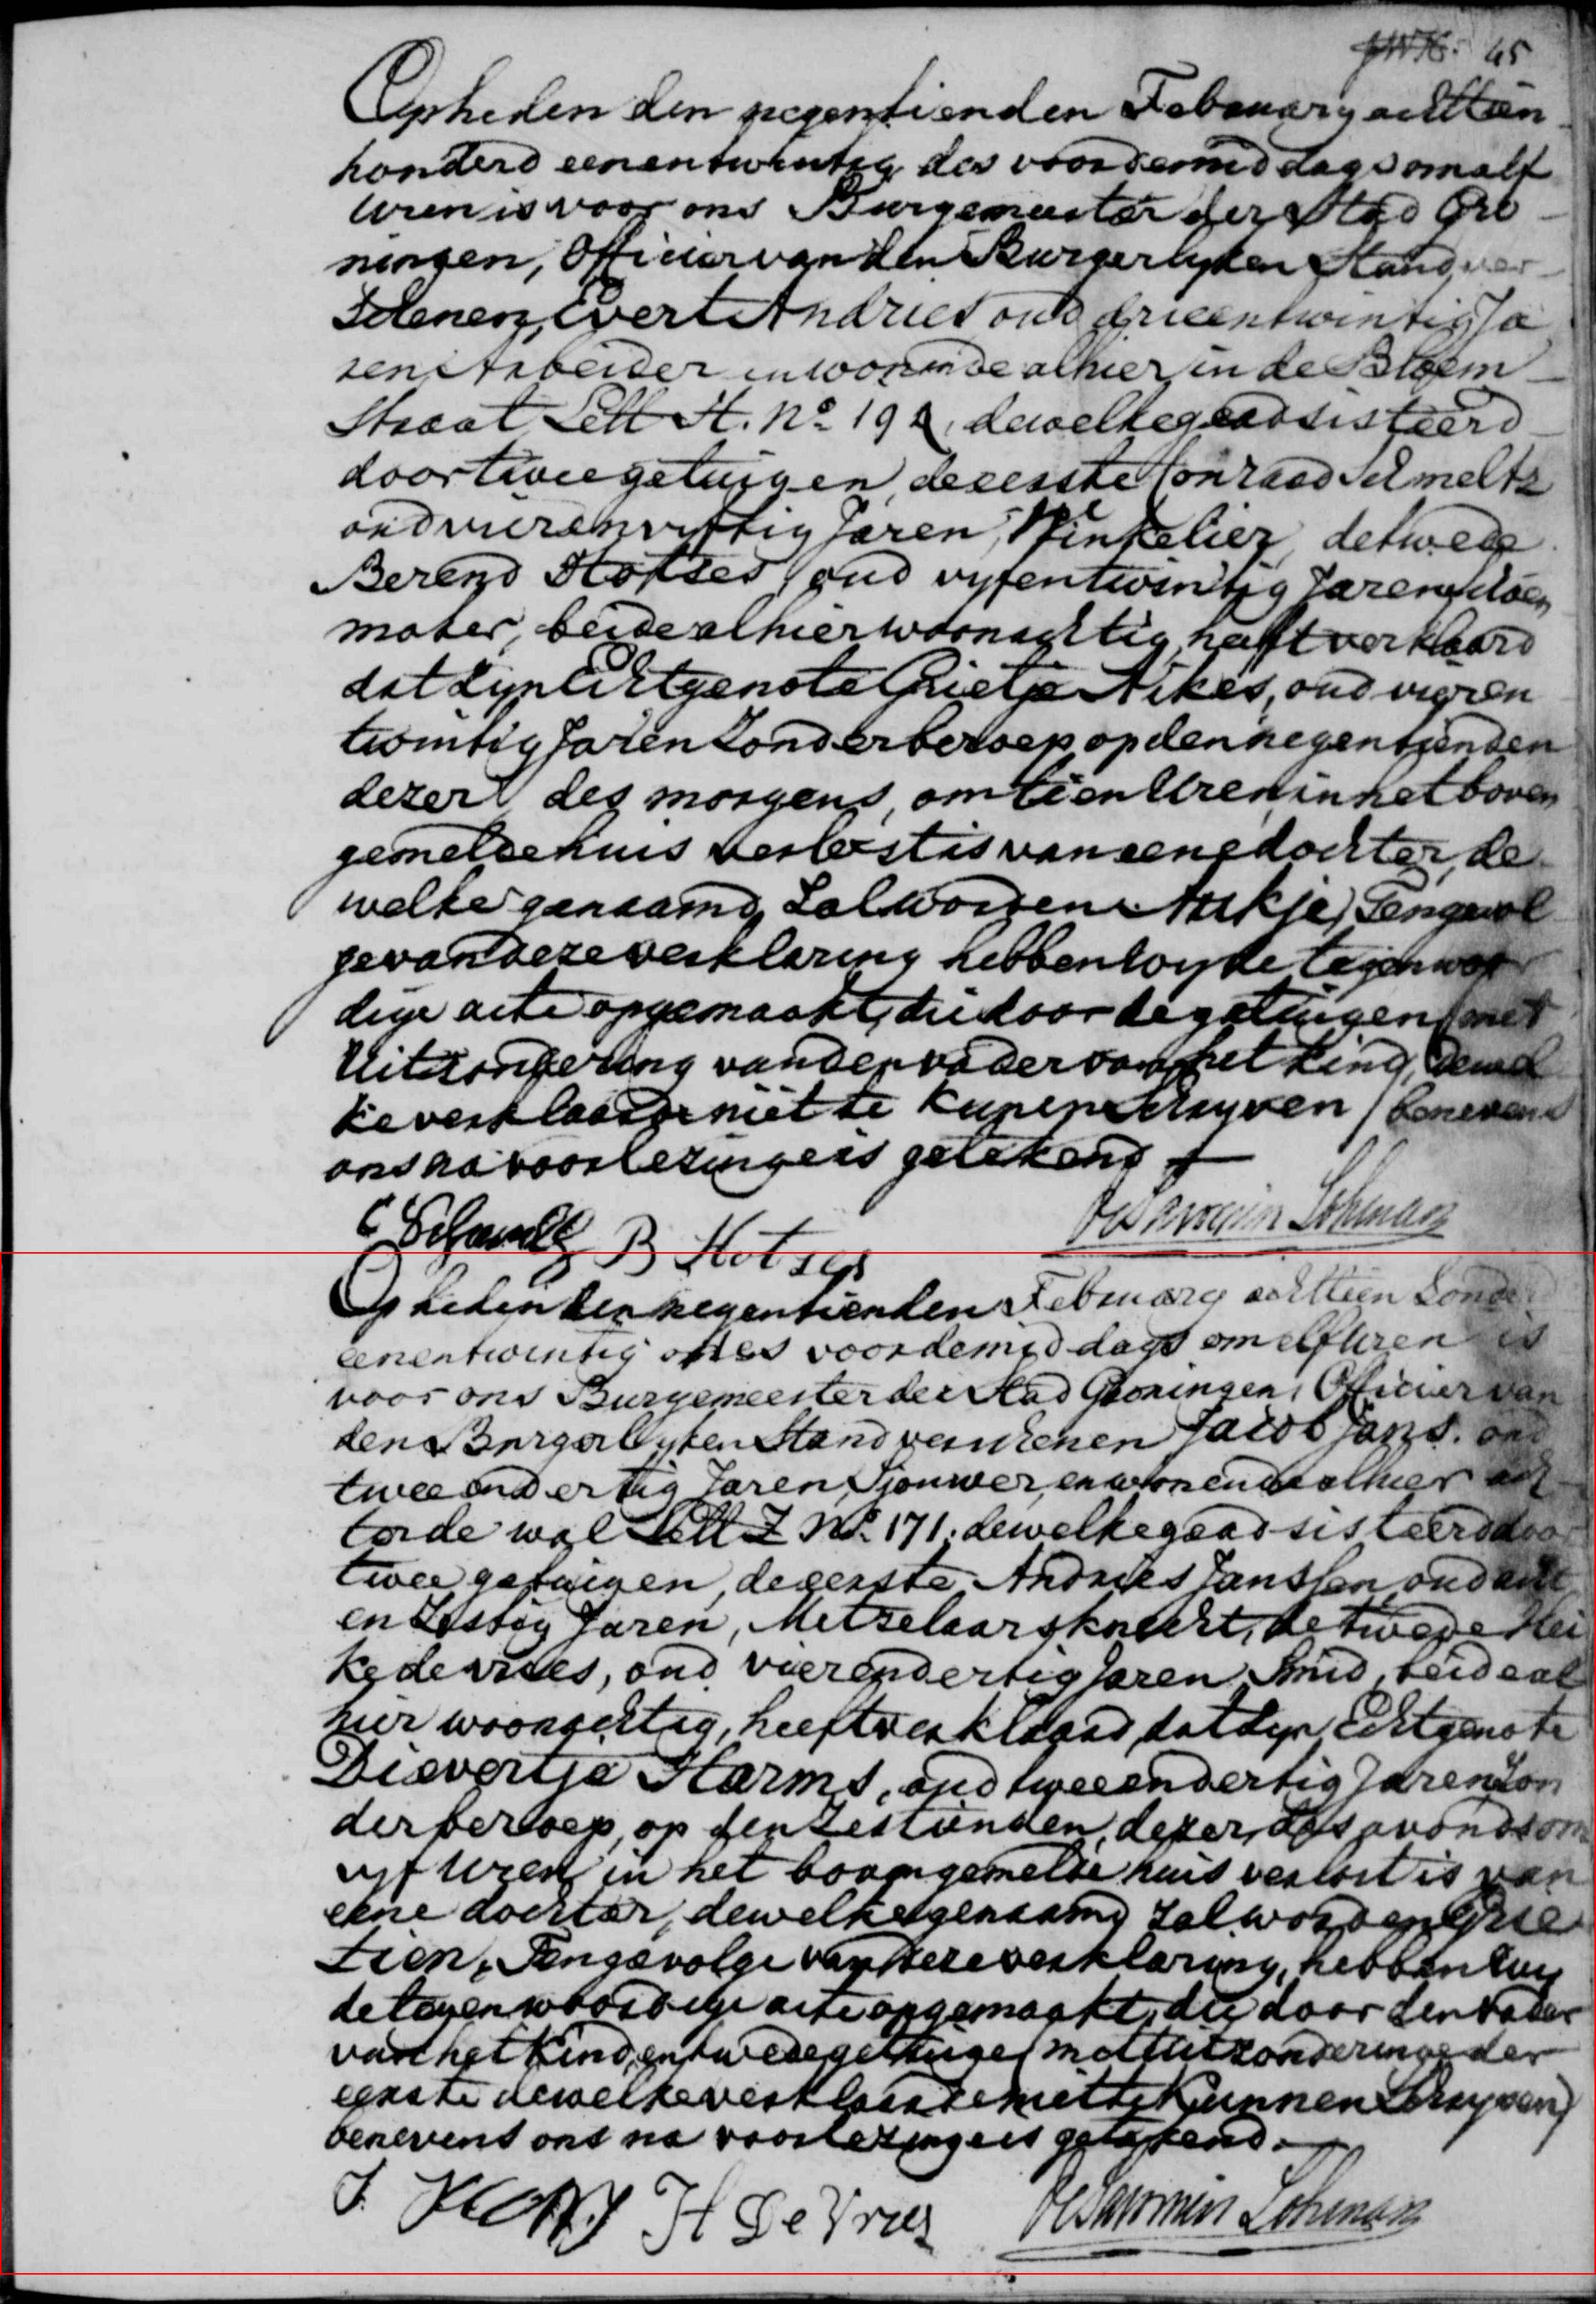 45
Opheden den negentienden February achttien
honderd eenentwintig des voordemiddags om alf
Uren is voor ons Burgemeester der Stad Gro
ningen, Officier van den Burgerlyken Stand, ver
schenen, Evert Andries oud drieentwintig Ja
ren Arbeider en woonende alhier in de Bloem
Straat Lett H. No 19 dewelke geadsisteerd
door twee getuigen, de eerste Conraad Schmeltz
oud vierenvyftig Jaren, Winkelier, de twede
Berend Hotses, oud vyfentwintig Jaren, schoen
maker, beide alhier woonachtig, heeft verklaard
dat Zyn Echtgenote Grietje Aikes, oud vieren
twintig Jaren Zonder beroep op den negentienden
dezer, des morgens, om tien Uren, in het boven
gemelde huis verlost is van eene dochter, de
welke genaamd Zal worden Aukje, Tengevol
ge van deze verklaring hebben wy de tegenwoor
dige acte opgemaakt, die door de getuigen (met
Uitzondering van den vader van het kind, dewel
ke verklaarde niet te kunen Schryven) benevens
ons na voorlezinge is getekend
C Schmeltz B Hotses de Savornin Lohman
Opheden den negentienden February achttien honderd
eenentwintig des voordemiddags om elf Uren is
voor ons Burgemeester der Stad Groningen, Officier van
den Burgerlyken Stand verschenen Jacob Jans. oud
twee en dertig Jaren, Sjouwer, en wonende alhier ach
ter de wal Lett Z No. 171. dewelke geadsisteerd door
twee getuigen, de eerste Andries Janssen, oud acht
en Zestig Jaren, Metzelaarsknecht, de twede Hei
ke de Vries, oud vierendertig Jaren Smid, beide al
hier woonachtig, heeft verklaard, dat Zyn Echtgenote
Dievertje Harms, oud twee en dertig Jaren, Zon
der beroep, op den Zestienden, dezer, des avonds om
vyf Uren in het bovengemelde huis verlost is van
eene dochter, dewelke genaamd Zal worden Grie
tien, Tengevolge van deze verklaring, hebben wy
de tegenwoordige acte opgemaakt, die door den vader
van het kind, en twede getuige (met Uitzondering der
eerste dewelke verklaarde niet te Kunnen Schryven)
benevens ons na voorlezinge is getekend.
J. Jans H De Vries de Savornin Lohman